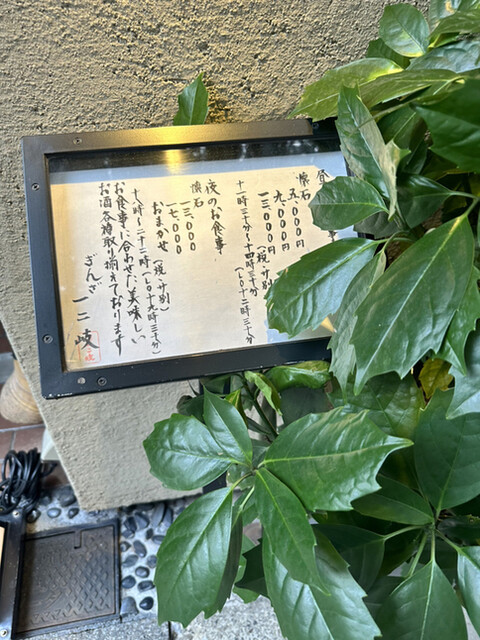 昼
懐石
五、000円
九、000円
一三、000円(税・サ別)
十一時三十分〜十四時三十分(LO十二時三十分)
夜のお食事
懐石
一三、000
一七、000
おまかせ(税・サ別)
十八時〜二十二時(LO十九時三十分)
お食事に合わせた美味しい
お酒各種取り揃えております
ぎんざ 一二岐